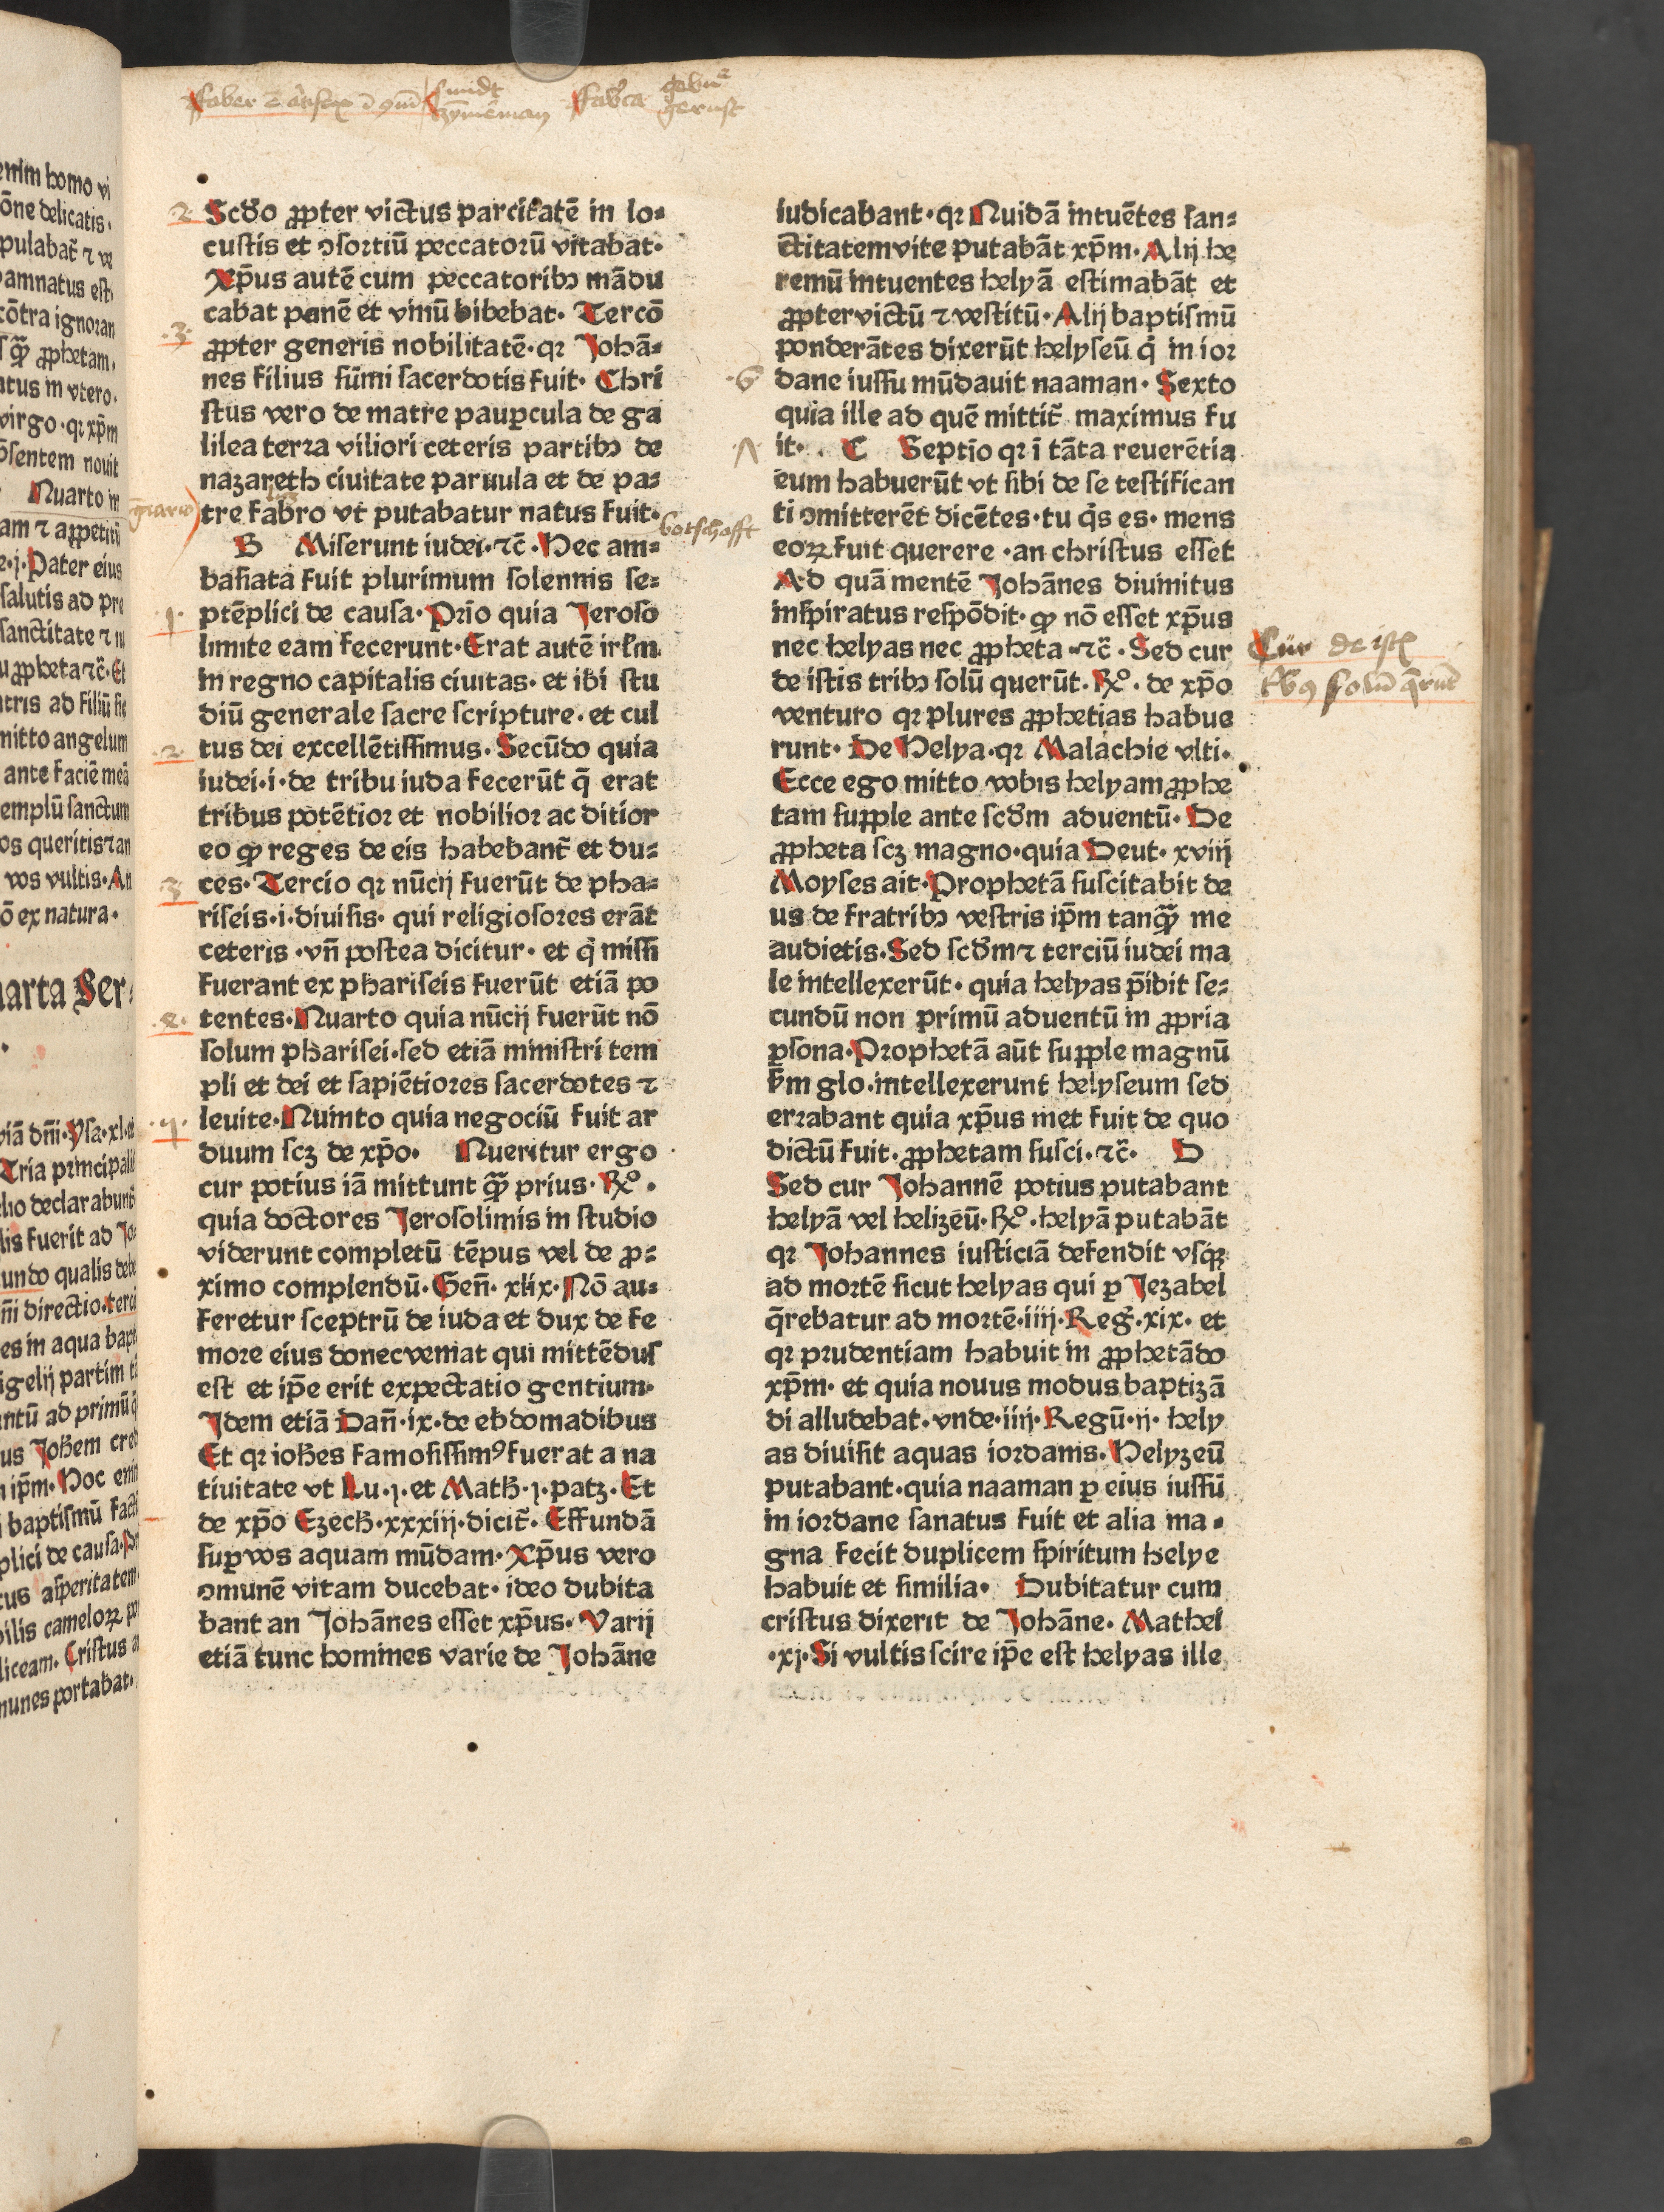 Scďo ꝓpter victus parcitatē in lo⸗
custis et ꝯsortiū peccatorū vitabat·
Xp̄us autē cum peccatoribꝫ mādu
cabat panē et vinū bibebat· Tercō
ꝓpter generis nobilitatē·qꝛ Johā⸗
nes filius sūmi sacerdotis fuit· Chri
stus vero de matre pauꝑcula de ga
lilea terra viliori ceteris partibꝫ de
nazareth ciuitate paruula et de pa⸗
tre fabro vt putabatur natus fuit·
B Miserunt iudei·⁊c̄·Hec am⸗
basiata fuit plurimum solennis se⸗
ptēplici de causa·Prīo quia Jeroso
limite eam fecerunt·Erat autē irłm
in regno capitalis ciuitas· et ibi stu
diū generale sacre scripture· et cul
tus dei excellētissimus· Secūdo quia
iudei·i·de tribu iuda fecerūt q̄ erat
tribus potētior et nobilior ac ditior
eo ꝙ reges de eis habebant̄ et du⸗
ces·Tercio qꝛ nūcij fuerūt de pha⸗
riseis·i·diuisis· qui religiosores erāt
ceteris ·vn̄ postea dicitur· et q̇ missi
fuerant ex phariseis fuerūt etiā po
tentes·Quarto quia nūcij fuerūt nō
solum pharisei·sed etiā ministri tem
pli et dei et sapiētiores sacerdotes ⁊
leuite·Quinto quia negociū fuit ar
duum scꝫ de xp̄o· Queritur ergo
cur potius iā mittunt ꝙ̄ prius· ꝶº·
quia doctores Jerosolimis in studio
viderunt completū tēpus vel de ꝓ⸗
ximo complendū·Gen̄· xlix·Nō au⸗
feretur sceptrū de iuda et dux de fe
more eius donec veniat qui mittēdus
est et ip̄e erit expectatio gentium·
Jdem etiā Dan̄·ix·de ebdomadibus
Et qꝛ ioħes famosissimꝰ fuerat a na
tiuitate vt Lu·j·et Matħ·j·patꝫ·Et
de xp̄o Ezecħ·xxxiij·dicit̄· Effundā
suꝑ vos aquam mūdam· Xp̄us vero
ꝯmunē vitam ducebat· ideo dubita
bant an Johānes esset xp̄us· Varij
etiā tunc homines varie de Johāne
iudicabant·qꝛ Quidā intuētes san⸗
ctitatem vite putabāt xp̄m·Alij he
remū intuentes helyā estimabāt et
ꝓpter victū ⁊ vestitū·Alij baptismū
ponderātes dixerūt helyseū q̇ in ior
dane iussu mūdauit naaman· Sexto
quia ille ad quē mittit̄ maximus fu
it· C Septīo qꝛ ī tāta reuerētia
eum habuerūt vt sibi de se testifican
ti ꝯmitterēt dicētes·tu q̇s es· mens
eoꝝ fuit querere ·an christus esset
Ad quā mentē Johānes diuinitus
inspiratus respōdit· ꝙ nō esset xp̄us
nec helyas nec ꝓpheta ·⁊c̄· Sed cur
de istis tribꝫ solū querūt·ꝶº· de xp̄o
venturo qꝛ plures ꝓphetias habue
runt· De Helya·qꝛ Malachie vlti·
Ecce ego mitto vobis helyam ꝓphe
tam supple ante scďm aduentū· De
ꝓpheta scꝫ magno·quia Deut· xviij
Moyses ait·Prophetā suscitabit de
us de fratribꝫ vestris ip̄m tanꝙ̄ me
audietis·Sed scďm ⁊ terciū iudei ma
le intellexerūt· quia helyas p̄ibit se⸗
cundū non primū aduentū in ꝓpria
ꝑsona·Prophetā aūt supple magnū
ẜm glo·intellexerunt helyseum sed
errabant quia xp̄us met fuit de quo
dictū fuit·ꝓphetam susci·⁊c̄· D
Sed cur Johannē potius putabant
helyā vel helizeū·ꝶº·helyā putabāt
qꝛ Johannes iusticiā defendit vsqꝫ
ad mortē sicut helyas qui ꝑ Jezabel
q̄rebatur ad mortē·iiij·Reg̃·xix· et
qꝛ prudentiam habuit in ꝓphetādo
xp̄m· et quia nouus modus baptizā
di alludebat·vnde·iiij·Regū·ij· hely
as diuisit aquas iordanis·Helyzeū
putabant·quia naaman ꝑ eius iussū
in iordane sanatus fuit et alia ma⸗
gna fecit duplicem spiritum helye
habuit et similia· Dubitatur cum
cristus dixerit de Johāne· Mathei
·xj·Si vultis scire ip̄e est helyas ille
botschafft
Cur de istis
tribꝰ solū q̄rūt